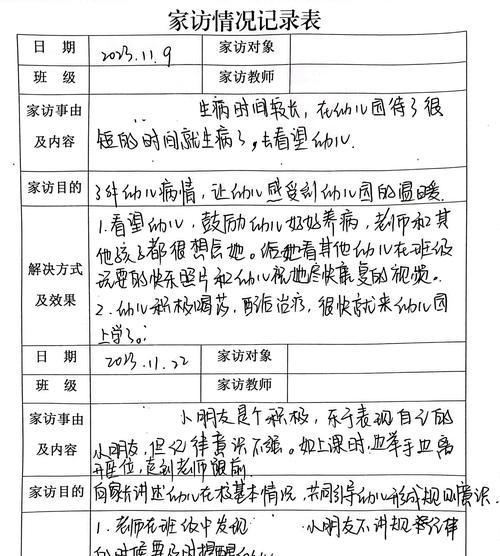 家访情况记录表
日 期 2023.11.9 家访对象
班 级 家访教师
家访事由及内容
生病时间较长，在幼儿园待了很
短的时间就生病了，去看望幼儿.
家访目的 了解幼儿病情，让幼儿感受到幼儿园的温暖.
解决方式及效果
1.看望幼儿，鼓励幼儿好好养病，老师和其
他孩子都很想念她。给她看其他幼儿在班级
玩耍的快乐照片和幼儿祝她尽快康复的视频。
2.幼儿积极喝药，配合治疗，很快就来幼儿园
上学了。
日 期 2023.11.22 家访对象
班 级 家访教师
家访事由及内容
小朋友是个积极，乐于表现自己的
小朋友，但纪律意识不强。如上课时，边举手边离
开座位，走到老师跟前
家访目的 向家长讲述幼儿在校基本情况，共同引导幼儿形成规则意识.
1.老师在班级中发现 小朋友不讲规
的时候要及时提醒